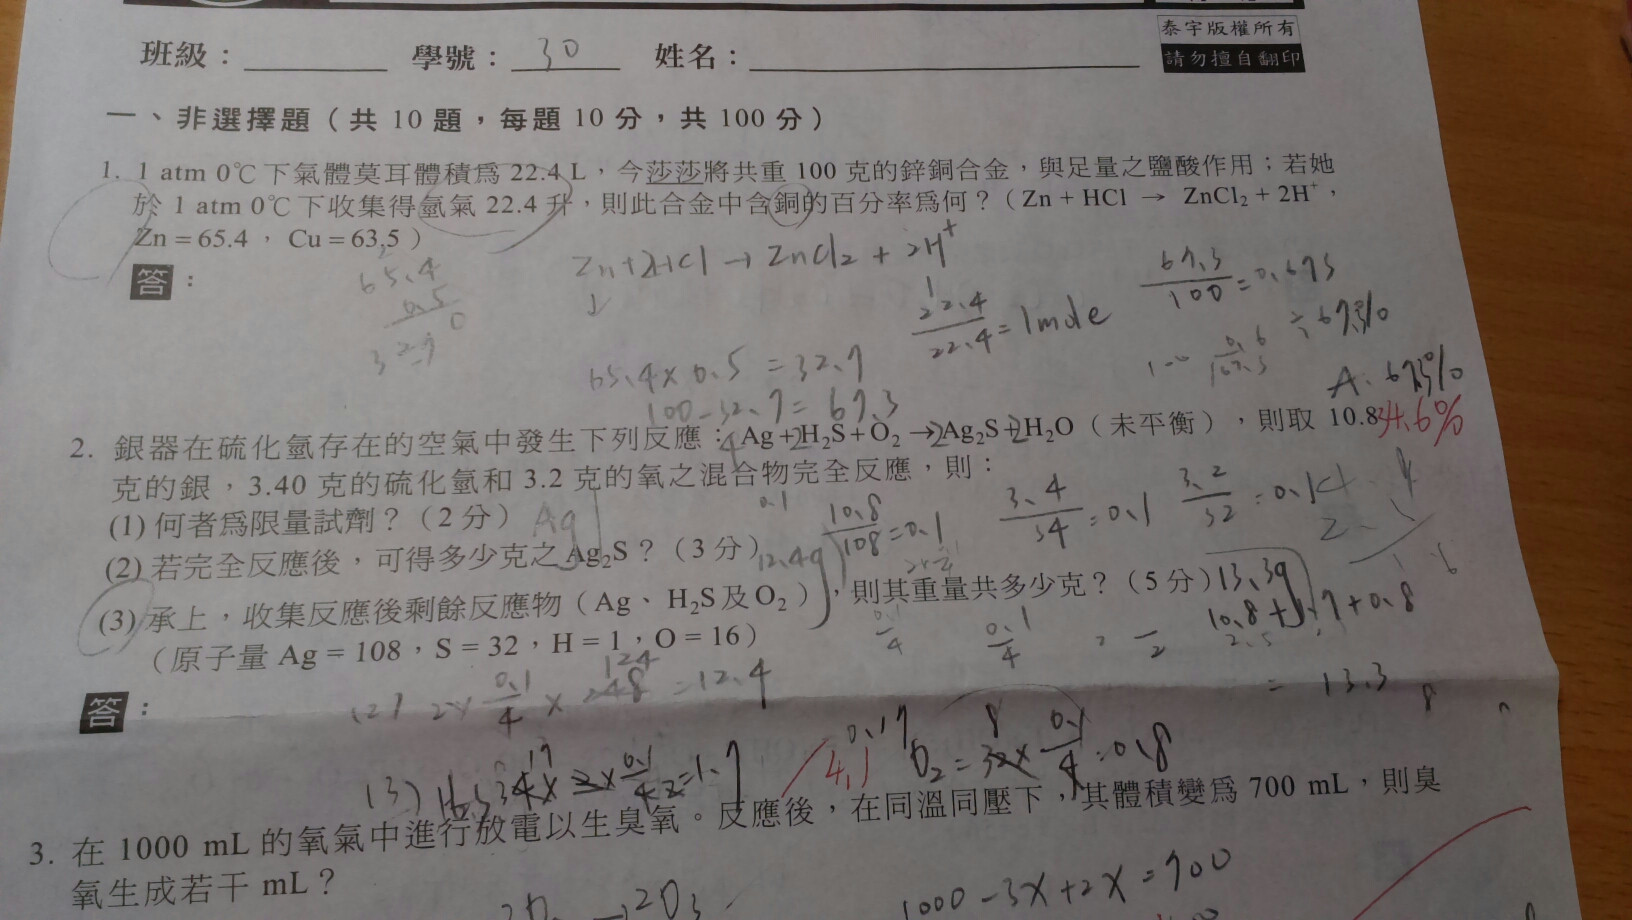 泰宇版權所有
請勿擅自翻印
班級： 學號：30 姓名：
一、非選擇題（共 10 題，每題 10 分，共 100 分）
1. 1 atm 0℃下氣體莫耳體積為 22.4 L，今莎莎將共重 100 克的鋅銅合金，與足量之鹽酸作用；若她
於 1 atm 0℃下收集得氫氣 22.4 升，則此合金中含銅的百分率為何？（Zn + HCl → ZnCl₂ + 2H⁺，
Zn = 65.4 ， Cu = 63.5 ）
答：
Zn+2HCl → ZnCl₂ + 2H⁺
65.4
0.5
22.4/22.4 = 1 mole
67.3/100 = 0.673
≒67.3%
65.4 x 0.5 = 32.7
100-32.7 = 67.3
A. 67.3%
34.6%
2. 銀器在硫化氫存在的空氣中發生下列反應：4Ag+2H₂S+O₂ →2Ag₂S+2H₂O（未平衡），則取 10.8
克的銀，3.40 克的硫化氫和 3.2 克的氧之混合物完全反應，則：
(1) 何者為限量試劑？（2 分） Ag
10.8/108 = 0.1
3.4/34 = 0.1
3.2/32 = 0.1
(2) 若完全反應後，可得多少克之 Ag₂S？（3 分） 12.4g
(3) 承上，收集反應後剩餘反應物（Ag、H₂S及O₂），則其重量共多少克？（5 分）13.3g
（原子量 Ag = 108，S = 32，H = 1，O = 16）
10.8+1.7+0.8
= 13.3
答：
(2) 2x 0.1/4 x 248 = 12.4
124
(3) H₂S 34 x 2 x 0.1/4 = 1.7
4.1
O₂ = 32x 0.1/4 = 0.8
3. 在 1000 mL 的氧氣中進行放電以生臭氧。反應後，在同溫同壓下，其體積變為 700 mL，則臭
氧生成若干 mL？
1000 - 3x + 2x = 700